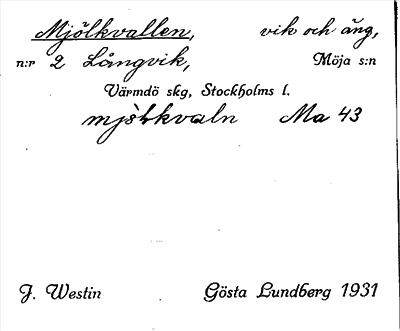 Mjölkvallen, vik och äng,
n:r 2 Långvik, Möja s:n
Värmdö skg, Stockholms l.
mjò̀lkvaln Ma 43
J. Westin Gösta Lundberg 1931